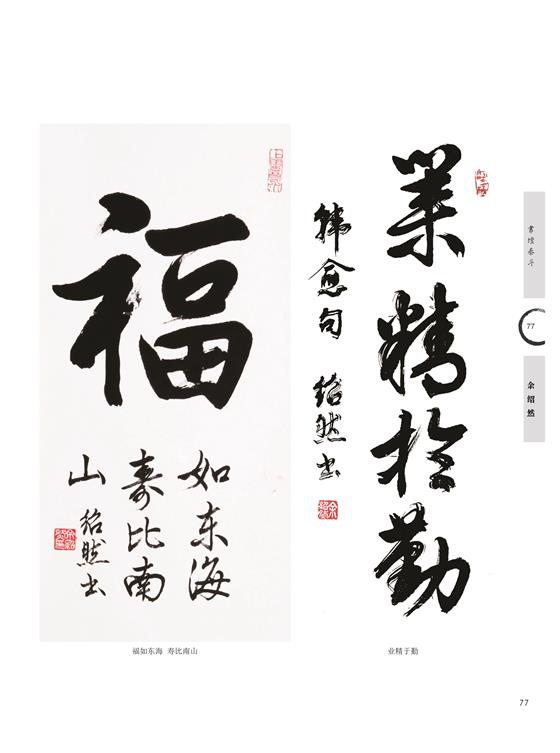 福
如东海
寿比南
山
绍然书
業精於勤
韩愈句 绍然书
書壇泰斗
77
余绍然
福如东海 寿比南山
业精于勤
77